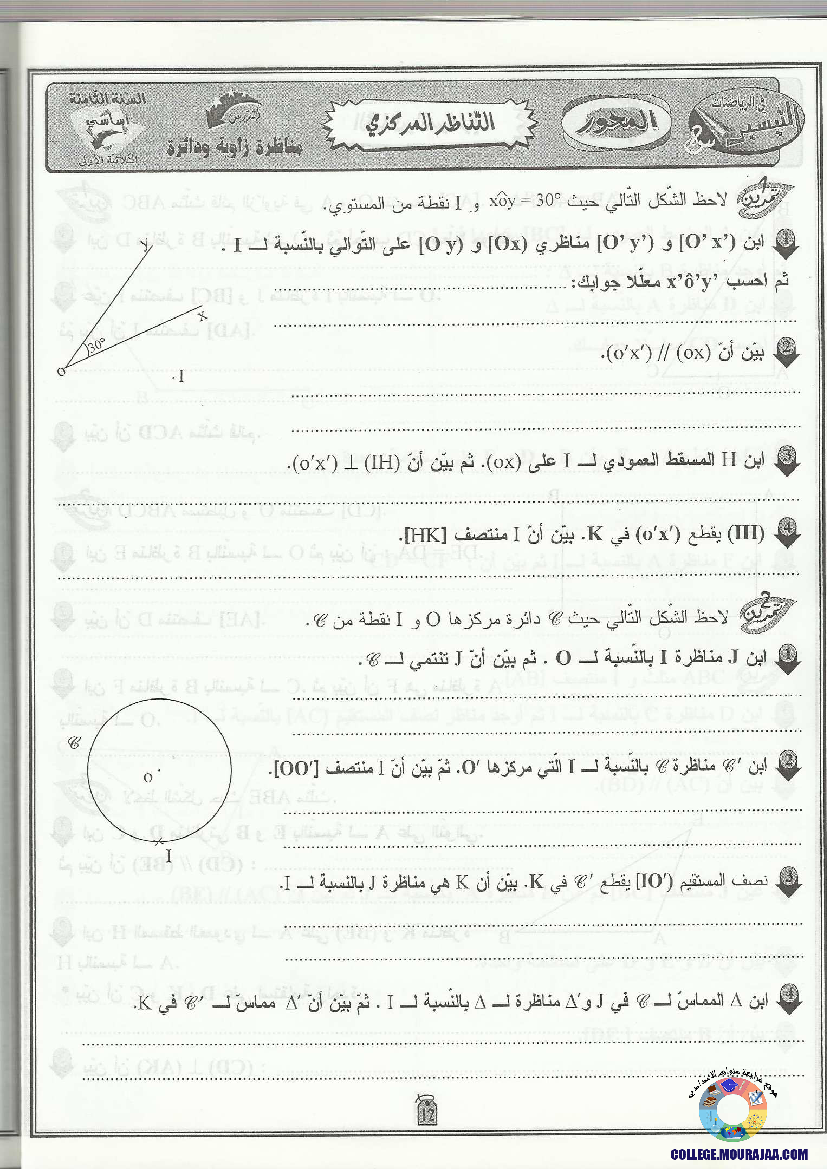 السنة الثامنة
أساسي
الثلاثية الأولى
الدرس
مناظرة زاوية ودائرة
التناظر المركزي
المحور
التيسير
في الرياضيات
تمرين 1 لاحظ الشّكل التّالي حيث xôy = 30° و I نقطة من المستوي.
1 ابن [O' x') و [O' y') مناظري [Ox) و [O y) على التّوالي بالنّسبة لـ I .
ثم احسب x'ô'y' معلّلا جوابك:
y
x
30°
O
I
2 بيّن أنّ (ox) // (o'x').
3 ابن H المسقط العمودي لـ I على (ox). ثم بيّن أنّ (IH) ⊥ (o'x').
4 (IH) يقطع (o'x') في K. بيّن أنّ I منتصف [HK].
تمرين 2 لاحظ الشّكل التّالي حيث 𝒞 دائرة مركزها O و I نقطة من 𝒞.
1 ابن J مناظرة I بالنّسبة لـ O . ثم بيّن أنّ J تنتمي لـ 𝒞.
𝒞
O
I
2 ابن '𝒞 مناظرة 𝒞 بالنّسبة لـ I الّتي مركزها O'. ثمّ بيّن أنّ I منتصف [OO'].
3 نصف المستقيم [IO') يقطع '𝒞 في K. بيّن أن K هي مناظرة J بالنّسبة لـ I.
4 ابن Δ المماسّ لـ 𝒞 في J و Δ' مناظرة لـ Δ بالنّسبة لـ I . ثمّ بيّن أنّ Δ' مماسّ لـ '𝒞 في K.
12
COLLEGE.MOURAJAA.COM